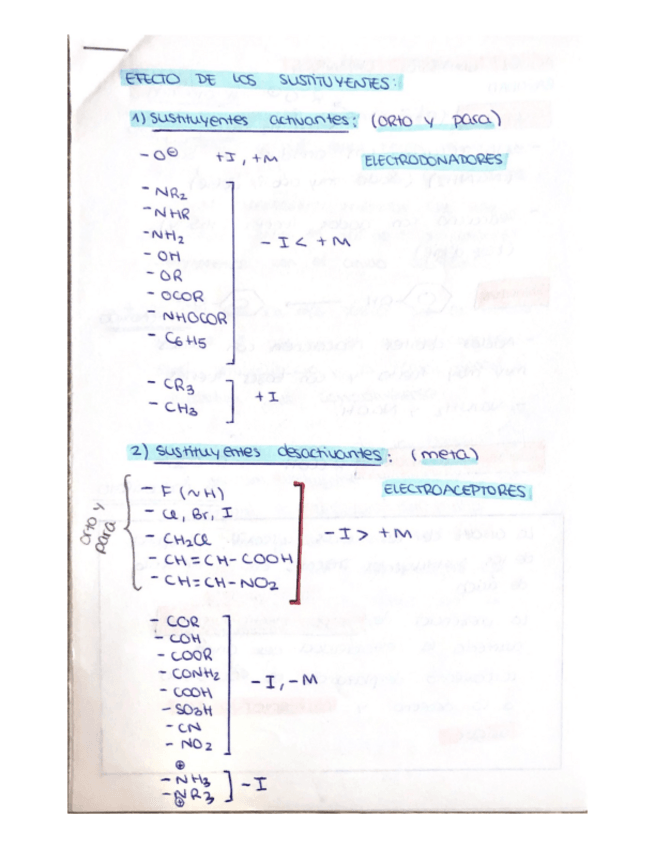 EFECTO DE LOS SUSTITUYENTES:
1) Sustituyentes activantes: (orto y para)
- O⊖ +I, +M ELECTRODONADORES
- NR2
- NHR
- NH2
- OH - I < +M
- OR
- OCOR
- NHOCOR
- C6H5
- CR3
- CH3 +I
2) Sustituyentes desactivantes: (meta)
ELECTROACEPTORES
orto y para
- F (~H)
- Cl, Br, I
- CH2Cl - I > +M
- CH=CH-COOH
- CH=CH-NO2
- COR
- COH
- COOR
- CONH2 - I, - M
- COOH
- SO3H
- CN
- NO2
⊕
- NH3 - I
- NR3
⊕